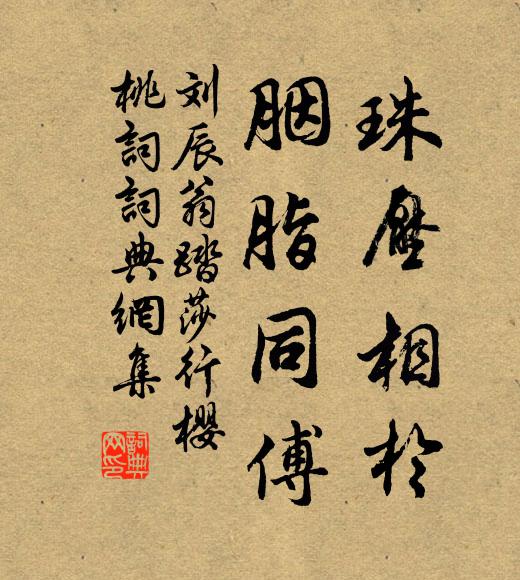 珠壓相於
胭脂同傅
刘辰翁踏莎行櫻
桃詞詞典網集
詞典網印